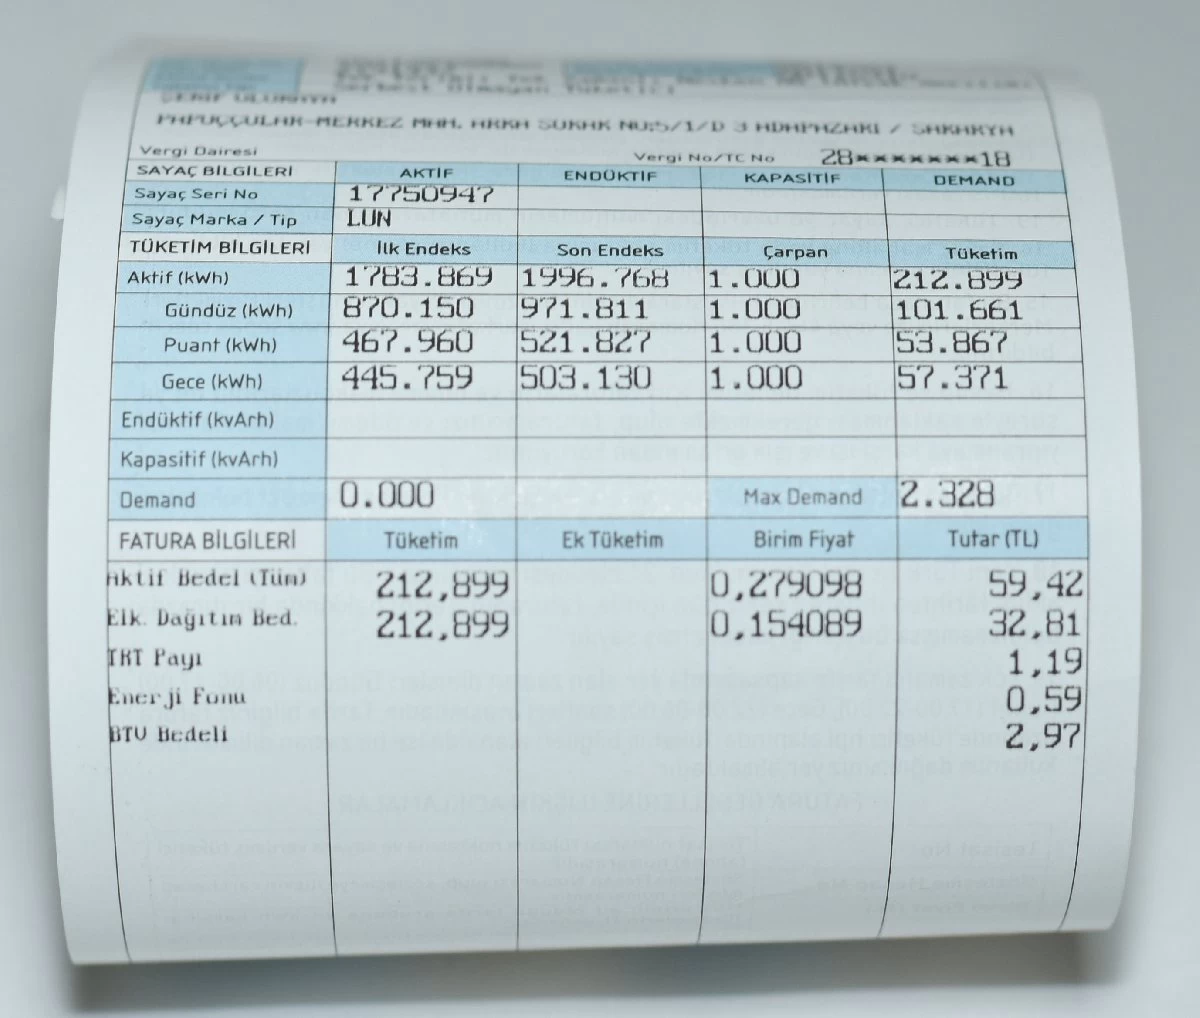 PAPUÇÇULAR-MERKEZ MAH. ARKA SOKAK NO:5/1/D 3 ADAPAZARI / SAKARYA
Vergi Dairesi Vergi No/TC No 28*******18
SAYAÇ BİLGİLERİ AKTİF ENDÜKTİF KAPASİTİF DEMAND
Sayaç Seri No 17750947
Sayaç Marka / Tip LUN
TÜKETİM BİLGİLERİ İlk Endeks Son Endeks Çarpan Tüketim
Aktif (kWh) 1783.869 1996.768 1.000 212.899
Gündüz (kWh) 870.150 971.811 1.000 101.661
Puant (kWh) 467.960 521.827 1.000 53.867
Gece (kWh) 445.759 503.130 1.000 57.371
Endüktif (kvArh)
Kapasitif (kvArh)
Demand 0.000 Max Demand 2.328
FATURA BİLGİLERİ Tüketim Ek Tüketim Birim Fiyat Tutar (TL)
Aktif Bedel (Tüm) 212,899 0,279098 59,42
Elk. Dağıtım Bed. 212,899 0,154089 32,81
TRT Payı 1,19
Enerji Fonu 0,59
BTV Bedeli 2,97